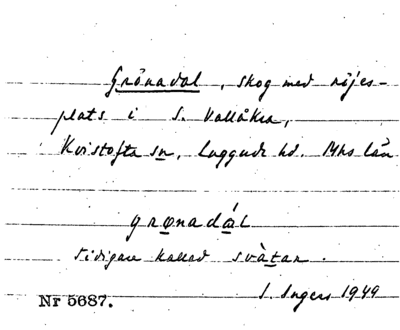 Grönadal, skog med nöjes-
plats i S. Vallåkra,
Kvistofta sn, Luggude hd. Mhs län
grønadál
tidigare kallad svàtan.
I. Ingers 1949
Nr 5687.